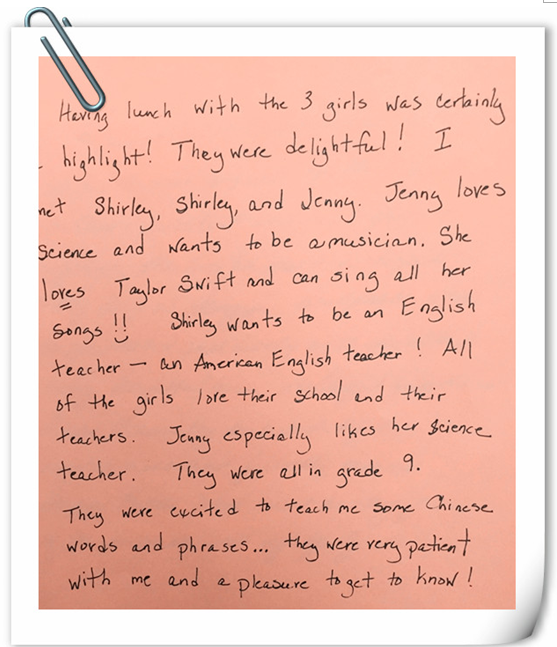 Having lunch with the 3 girls was certainly
highlight! They were delightful! I
met Shirley, Shirley, and Jenny. Jenny loves
science and wants to be a musician. She
loves Taylor Swift and can sing all her
songs!! Shirley wants to be an English
teacher — an American English teacher! All
of the girls love their school and their
teachers. Jenny especially likes her science
teacher. They were all in grade 9.
They were excited to teach me some Chinese
words and phrases... they were very patient
with me and a pleasure to get to know!